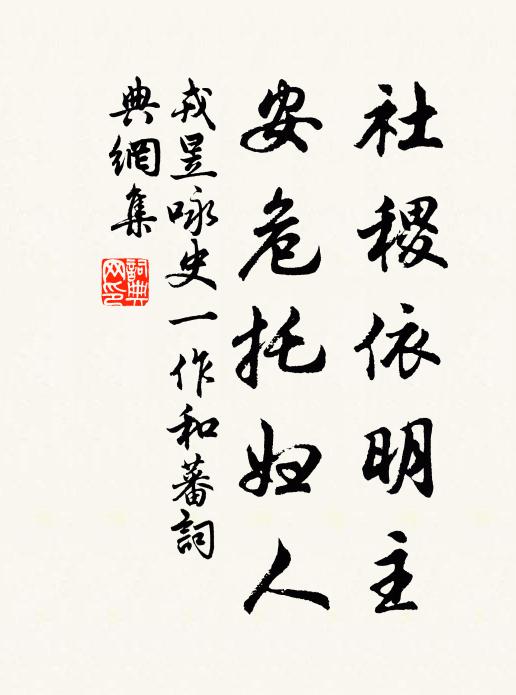 社稷依明主
安危托妇人
戎昱咏史一作和蕃詞
典網集
詞典网印